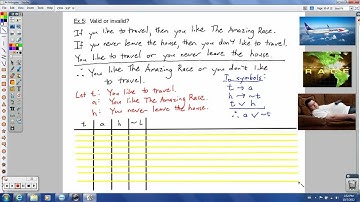 Ex 6: Valid or invalid?
If you like to travel, then you like The Amazing Race.
If you never leave the house, then you don't like to travel.
You like to travel or you never leave the house.
∴ You like The Amazing Race or you don't like
to travel.
Let t: You like to travel.
a: You like The Amazing Race.
h: You never leave the house.
In symbols:
t → a
h → ~t
t ∨ h
∴ a ∨ ~t
t a h ~t